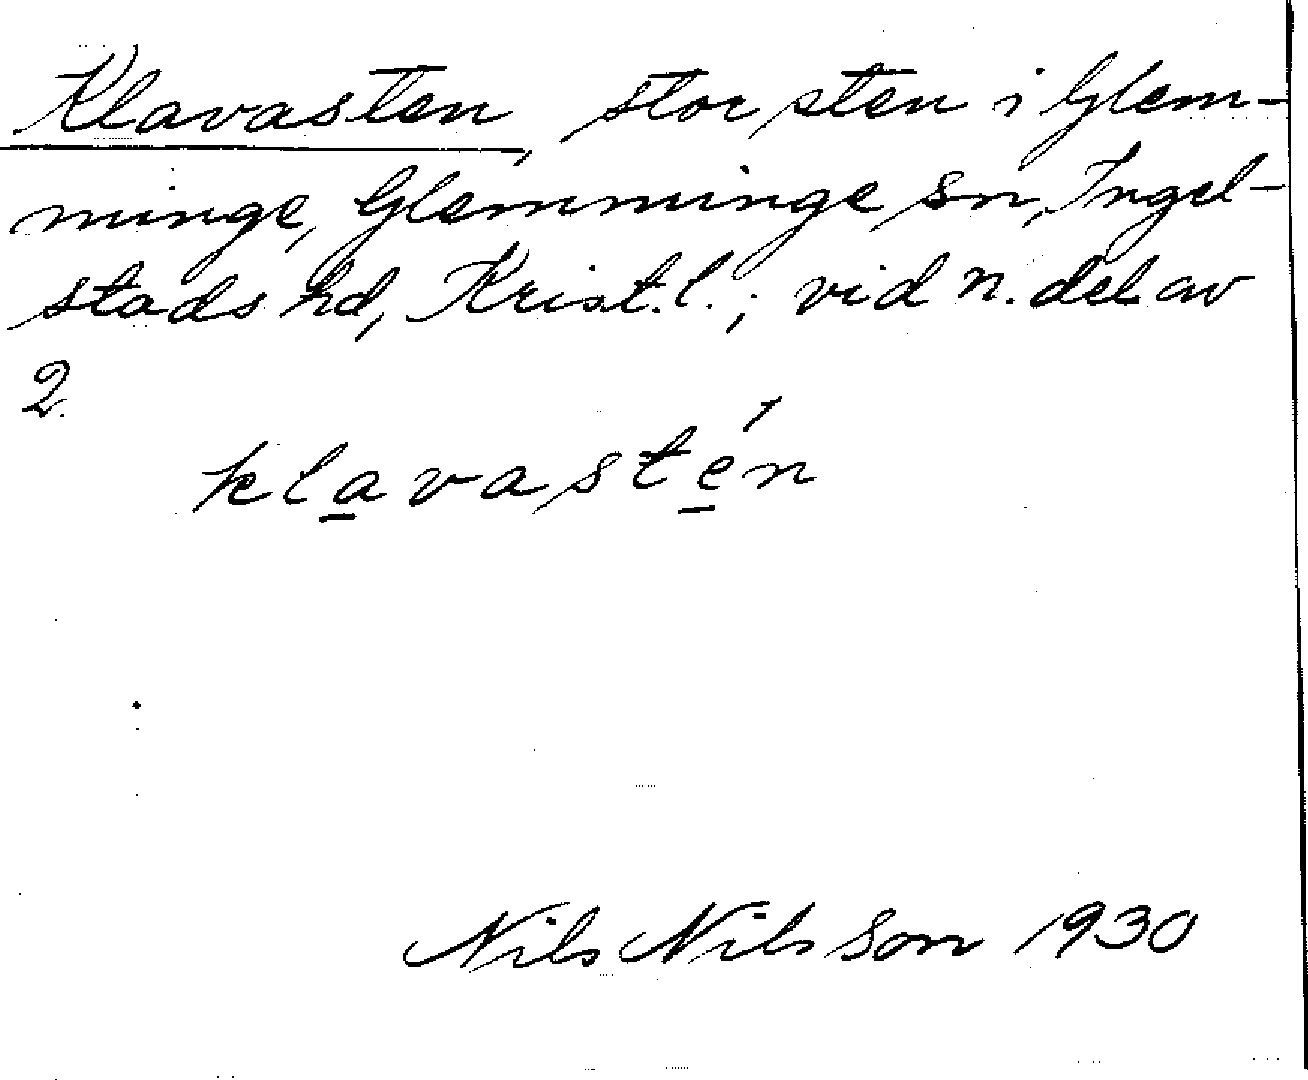 Klavasten, stor sten i Glem-
minge, Glemminge sn, Ingel-
stads hd, Krist.l.; vid n. del av
2.
klavastén
Nils Nilsson 1930